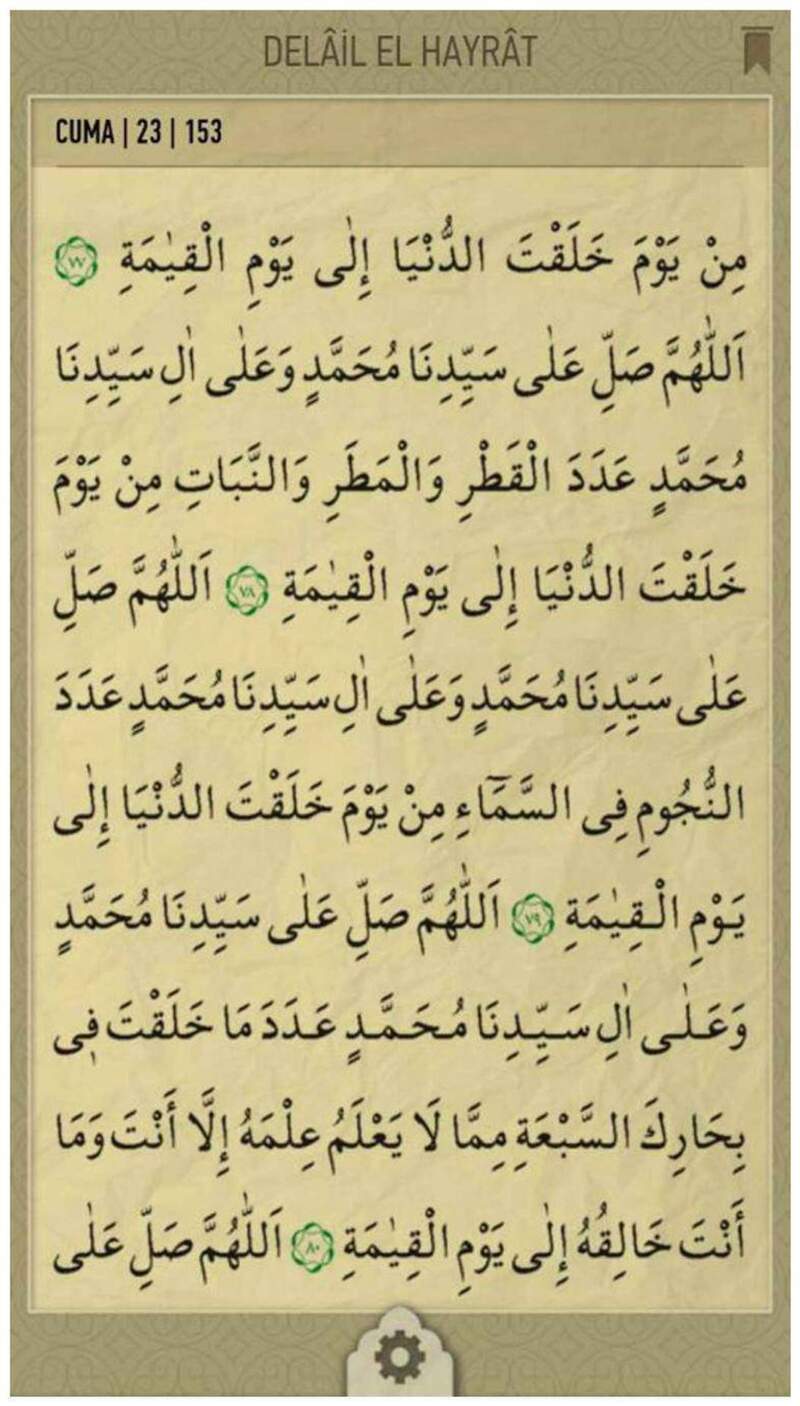 DELÂİL EL HAYRÂT
CUMA | 23 | 153
مِنْ يَوْمَ خَلَقْتَ الدُّنْيَا إِلٰى يَوْمِ الْقِيٰمَةِ ٧٧
اَللّٰهُمَّ صَلِّ عَلٰى سَيِّدِنَا مُحَمَّدٍ وَعَلٰى اٰلِ سَيِّدِنَا
مُحَمَّدٍ عَدَدَ الْقَطْرِ وَالْمَطَرِ وَالنَّبَاتِ مِنْ يَوْمَ
خَلَقْتَ الدُّنْيَا إِلٰى يَوْمِ الْقِيٰمَةِ ٧٨ اَللّٰهُمَّ صَلِّ
عَلٰى سَيِّدِنَا مُحَمَّدٍ وَعَلٰى اٰلِ سَيِّدِنَا مُحَمَّدٍ عَدَدَ
النُّجُومِ فِى السَّمَٓاءِ مِنْ يَوْمَ خَلَقْتَ الدُّنْيَا إِلٰى
يَوْمِ الْقِيٰمَةِ ٧٩ اَللّٰهُمَّ صَلِّ عَلٰى سَيِّدِنَا مُحَمَّدٍ
وَعَلٰى اٰلِ سَيِّدِنَا مُحَمَّدٍ عَدَدَ مَا خَلَقْتَ فِى
بِحَارِكَ السَّبْعَةِ مِمَّا لَا يَعْلَمُ عِلْمَهُ إِلَّا أَنْتَ وَمَا
أَنْتَ خَالِقُهُ إِلٰى يَوْمِ الْقِيٰمَةِ ٨٠ اَللّٰهُمَّ صَلِّ عَلٰى